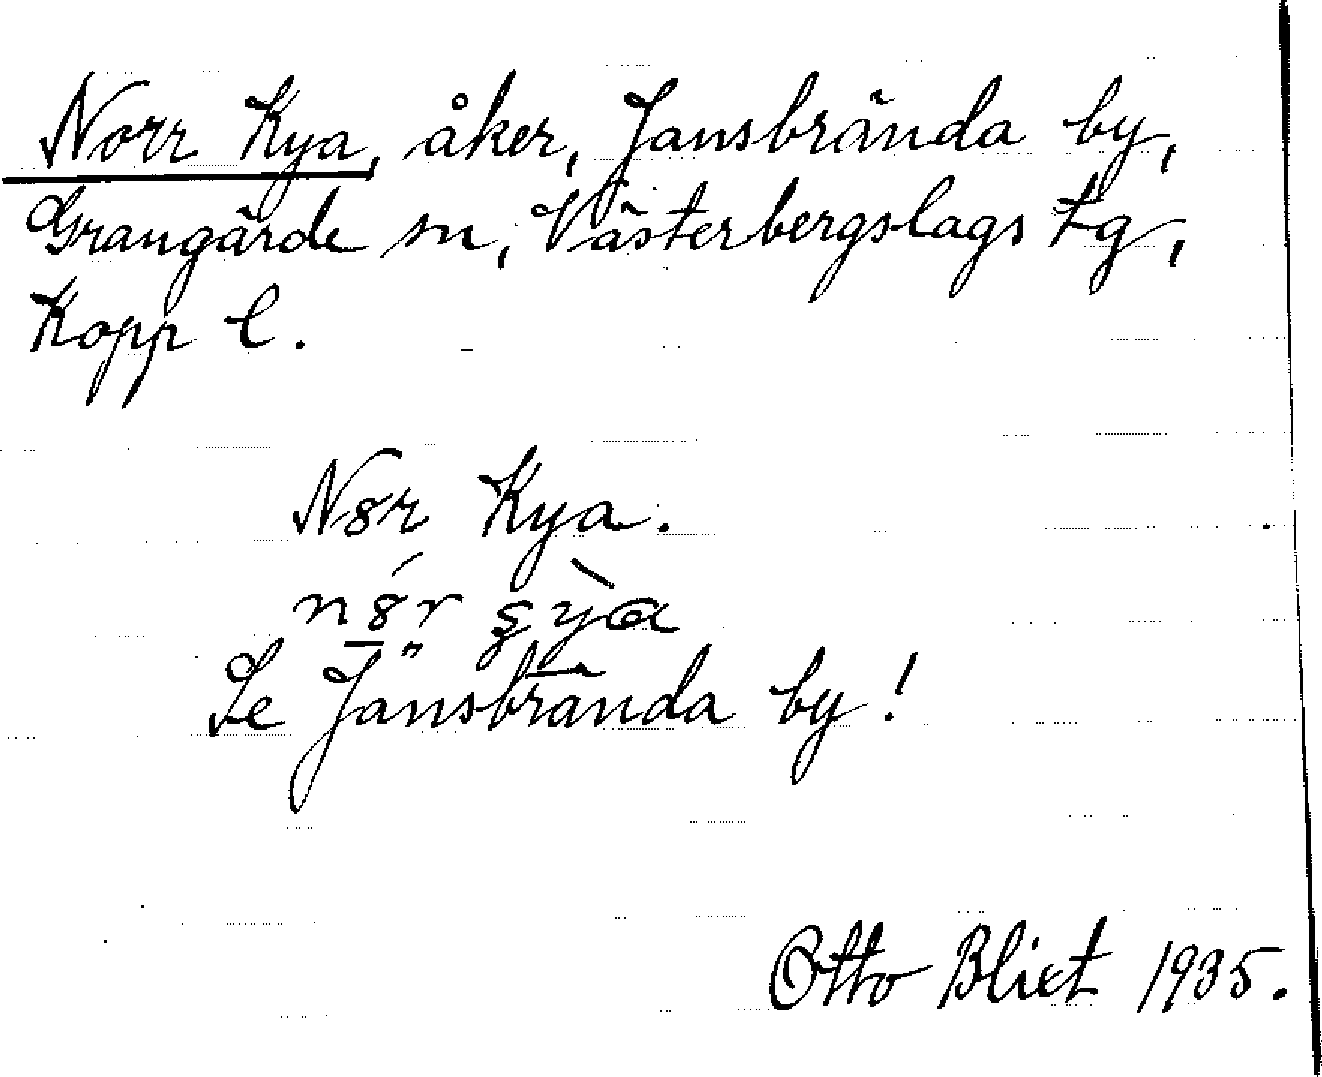 Norr Kya, åker, Jansbrända by,
Grangärde sn, Västerbergslags tg,
Kopp l.
Nør Kya.
Se Jänsbrända by!
Otto Blixt 1935.